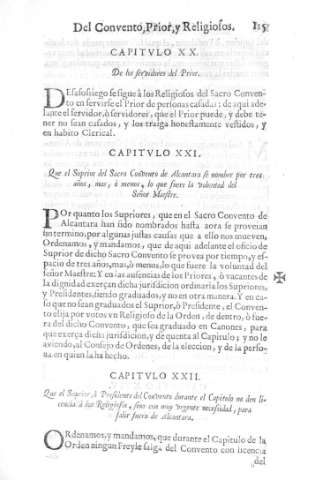 Del Convento, Prior, y Religiosos. 115
CAPITVLO XX.
De los servidores del Prior.
DEsasosiego se sigue à los Religiosos del Sacro Conven-
to en servirse el Prior de personas casadas: de aqui ade-
lante el servidor, ò servidores, que el Prior puede, y debe te-
ner no sean casados, y los traiga honestamente vestidos, y
en habito Clerical.
CAPITVLO XXI.
Que el Suprior del Sacro Convento de Alcantara se nombre por tres
años, mas, ò menos, lo que fuere la voluntad del
Señor Maestre.
POr quanto los Supriores, que en el Sacro Convento de
Alcantara han sido nombrados hasta aora se proveian
sin termino, por algunas justas causas que a ello nos mueven,
Ordenamos, y mandamos, que de aqui adelante el oficio de
Suprior de dicho Sacro Convento se provea por tiempo, y es-
pacio de tres años, mas, ò menos, lo que fuere la voluntad del
señor Maestre: Y en las ausencias de los Priores, ò vacantes de
la dignidad exerçan dicha jurisdicion ordinaria los Supriores,
y Presidentes, siendo graduados, y no en otra manera. Y en ca-
so que no sean graduados el Suprior, ò Presidente, el Conven-
to elija por votos vn Religioso de la Orden, de dentro, ò fue-
ra del dicho Convento, que sea graduado en Canones, para
que exerça dicha jurisdicion, y de quenta al Capitulo; y no le
aviendo, al Consejo de Ordenes, de la eleccion, y de la perso-
na en quien la ha hecho.
CAPITVLO XXII.
Que el Suprior, ò Presidente del Convento durante el Capitulo no den li-
cencia à los Religiosos, sino con muy vrgente necesidad, para
salir fuera de Alcantara.
ORdenamos, y mandamos, que durante el Capitulo de la
Orden ningun Freyle salga del Convento con licencia
del